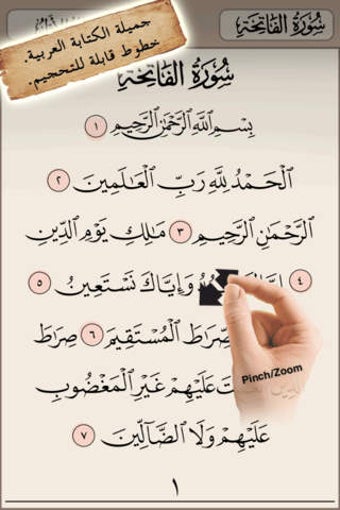 سُورَةُ الفَاتِحَةِ
جميلة الكتابة العربية.
خطوط قابلة للتحجيم.
سُورَةُ الفَاتِحَةِ
بِسْمِ ٱللَّهِ ٱلرَّحْمَٰنِ ٱلرَّحِيمِ ١
ٱلْحَمْدُ لِلَّهِ رَبِّ ٱلْعَٰلَمِينَ ٢
ٱلرَّحْمَٰنِ ٱلرَّحِيمِ ٣ مَٰلِكِ يَوْمِ ٱلدِّينِ
٤ وَإِيَّاكَ نَسْتَعِينُ ٥
ٱلْمُسْتَقِيمَ ٦ صِرَٰطَ
عَلَيْهِمْ غَيْرِ ٱلْمَغْضُوبِ
Pinch/Zoom
عَلَيْهِمْ وَلَا ٱلضَّآلِّينَ ٧
١